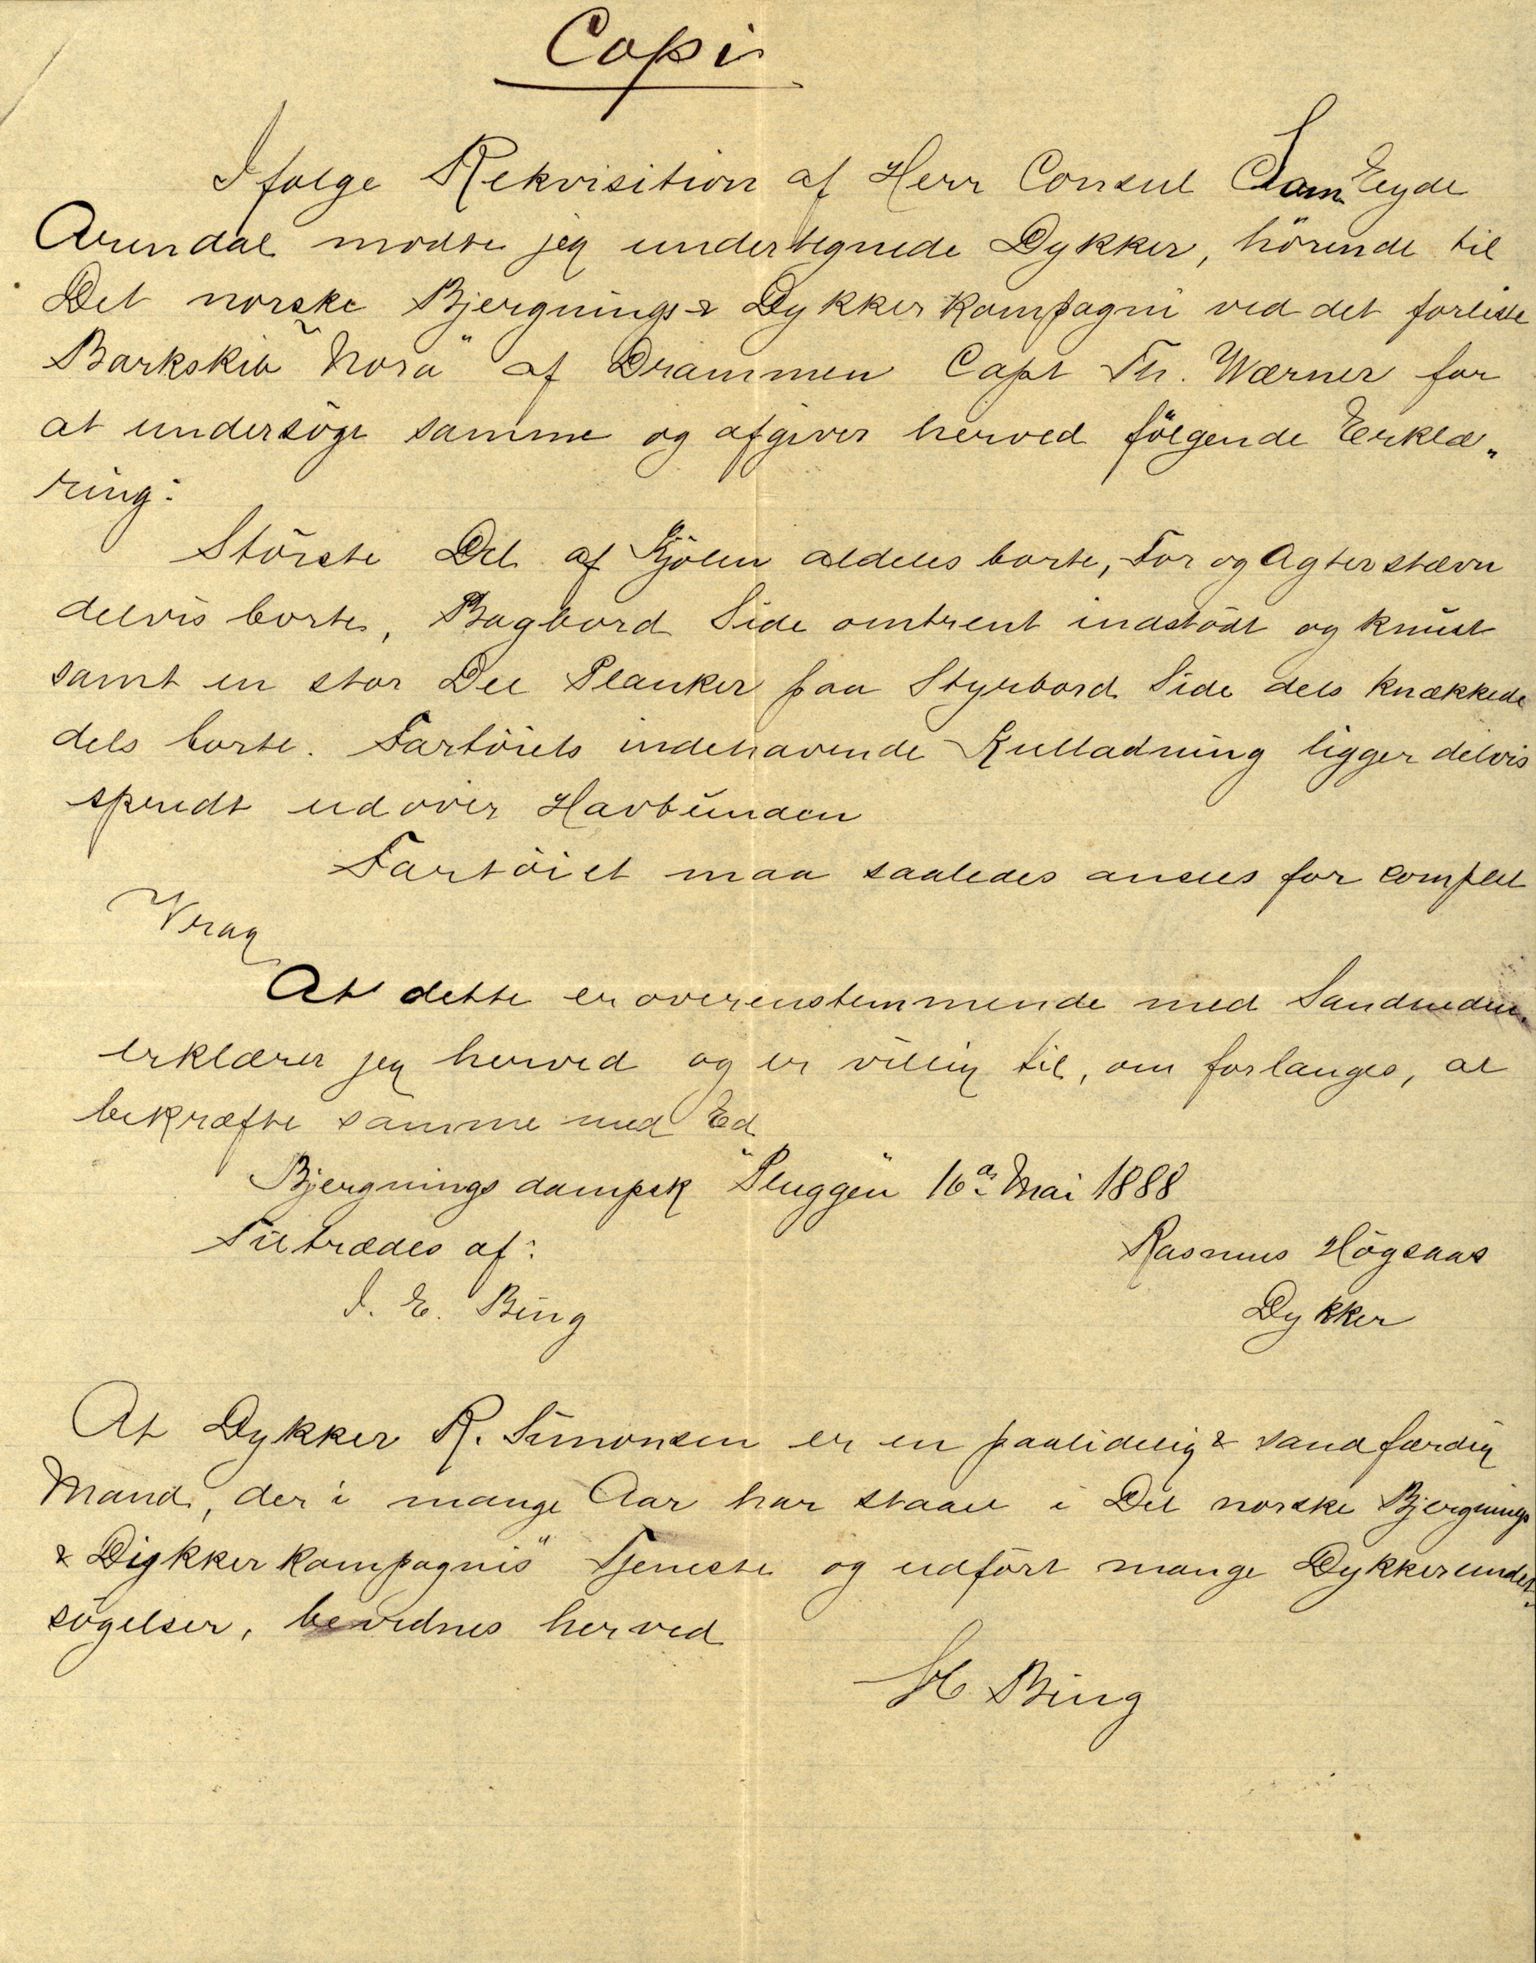 Copi
Ifølge Rekvisition af Herr Consul Sam Eyde
Arendal mødte jeg undertegnede Dykker, hörende til
Det norske Bjergnings & Dykkerkompagni ved det forliste
Barkskib "Nora" af Drammen Capt Th. Wærner for
at undersöge samme og afgiver herved fölgende Erklæ„
ring:
Störste Del af Kjölen aldeles borte, For og Agterstævn
delvis borte, Bagbord Side omtrent indstödt og knust
samt en stor Del Planker paa Styrbord Side dels knækkede
dels borte. Fartöiets indehavende Kulladning ligger delvis
spredt udover Havbunden
Fartöiet maa saaledes ansees for complet
Vrag
At dette er overenstemmende med Sandheden
erklærer jeg herved og er villig til, om forlanges, at
bekræfte samme med Ed
Bjergningsdampsk "Pluggen" 16de Mai 1888
Tiltrædes af: Rasmus Högsaas
I. E. Bing Dykker
At Dykker R. Simonsen er en paalidelig & sandfærdig
Mand, der i mange Aar har staaet i Det norske Bjergnings
& Dykkerkompagnis" Tjeneste og udfört mange Dykkerunder-
sögelser, bevidnes herved
H Bing